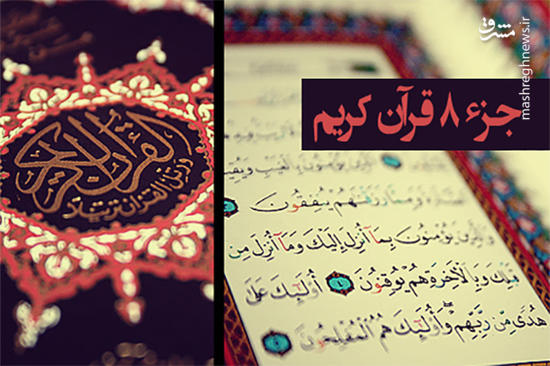 مشرق
mashreghnews.ir
جزء ۸ قرآن کریم
القرآن الكريم
ورتل القرآن ترتيلا
يُؤْمِنُونَ بِالْغَيْبِ
وَمِمَّا رَزَقْنَاهُمْ يُنْفِقُونَ
وَالَّذِينَ يُؤْمِنُونَ بِمَا أُنْزِلَ إِلَيْكَ وَمَا أُنْزِلَ مِنْ
قَبْلِكَ وَبِالْآخِرَةِ هُمْ يُوقِنُونَ ٤ أُولَئِكَ عَلَى
هُدًى مِنْ رَبِّهِمْ وَأُولَئِكَ هُمُ الْمُفْلِحُونَ ٥